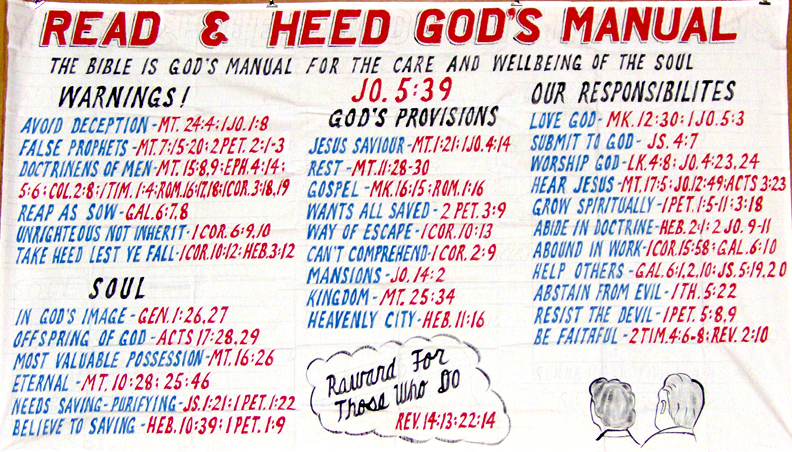 READ & HEED GOD'S MANUAL
THE BIBLE IS GOD'S MANUAL FOR THE CARE AND WELLBEING OF THE SOUL
WARNINGS!
AVOID DECEPTION-MT. 24:4; 1JO. 1:8
FALSE PROPHETS-MT. 7:15:20; 2 PET. 2:1-3
DOCTRINENS OF MEN-MT. 15:8,9; EPH. 4:14;
5:6; COL. 2:8; 1 TIM. 1:4; ROM. 16:17,18; 1COR. 3:18,19
REAP AS SOW-GAL. 6:7,8
UNRIGHTEOUS NOT INHERIT-1 COR. 6:9,10
TAKE HEED LEST YE FALL-1COR. 10:12; HEB. 3:12
SOUL
IN GOD'S IMAGE-GEN. 1:26,27
OFFSPRING OF GOD-ACTS 17:28,29
MOST VALUABLE POSSESSION-MT. 16:26
ETERNAL-MT. 10:28; 25:46
NEEDS SAVING-PURIFYING-JS. 1:21; 1 PET. 1:22
BELIEVE TO SAVING-HEB. 10:39; 1 PET. 1:9
JO. 5:39
GOD'S PROVISIONS
JESUS SAVIOUR-MT. 1:21; 1 JO. 4:14
REST-MT. 11:28-30
GOSPEL-MK. 16:15; ROM. 1:16
WANTS ALL SAVED-2 PET. 3:9
WAY OF ESCAPE-1COR. 10:13
CAN'T COMPREHEND-1 COR. 2:9
MANSIONS-JO. 14:2
KINGDOM-MT. 25:34
HEAVENLY CITY-HEB. 11:16
Raward For
Those Who DO
REV. 14:13; 22:14
OUR RESPONSIBILITES
LOVE GOD-MK. 12:30; 1 JO. 5:3
SUBMIT TO GOD-JS. 4:7
WORSHIP GOD-LK. 4:8; JO. 4:23,24
HEAR JESUS-MT. 17:5; JO. 12:49; ACTS 3:23
GROW SPIRITUALLY-1 PET. 1:5-11; 3:18
ABIDE IN DOCTRINE-HEB. 2:1; 2 JO. 9-11
ABOUND IN WORK-1COR. 15:58; GAL. 6:10
HELP OTHERS-GAL. 6:1,2,10; JS. 5:19,20
ABSTAIN FROM EVIL-1TH. 5:22
RESIST THE DEVIL-1PET. 5:8,9
BE FAITHFUL-2TIM. 4:6-8; REV. 2:10